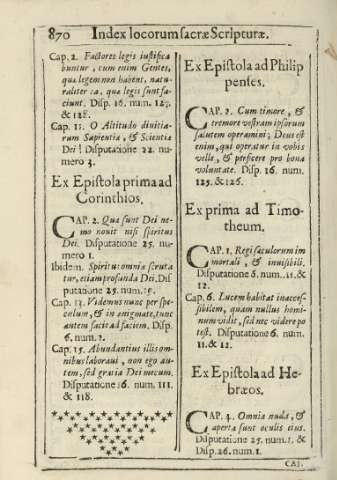 870 Index locorum sacræ Scripturæ.
Cap. 2. Factores legis iustifica
buntur, cum enim Gentes,
qua legem non habent, natu-
raliter ea, qua legis sunt fa-
ciunt. Disp. 16. num. 127.
& 128.
Cap. 11. O Altitudo divitia-
rum Sapientia, & Scientia
Dei! Disputatione 22. nu-
mero 3.
Ex Epistola prima ad
Corinthios.
CAP. 2. Qua sunt Dei ne-
mo novit nisi spiritus
Dei. Disputatione 25. nu-
mero 1.
Ibidem. Spiritus omnia scruta
tur, etiam profunda Dei. Dis
putatione 25. num. 15.
Cap. 13. Videmus nunc per spe-
culum, & in enigmate, tunc
autem facie ad faciem. Disp.
6. num. 2.
Cap. 15. Abundantius illis om-
nibus laboravi, non ego au-
tem, sed gratia Dei mecum.
Disputatione 16. num. 111.
& 118.
Ex Epistola ad Philip
penses.
CAP. 2. Cum timore, &
tremore vestram ipsorum
salutem operamini; Deus est
enim, qui operatur in vobis
velle, & perficere pro bona
voluntate. Disp. 16. num.
125. & 126.
Ex prima ad Timo-
theum.
CAP. 1. Regi saculorum im
mortali, & invisibili.
Disputatione 6. num. 11. &
12.
Cap. 6. Lucem habitat inacces-
sibilem, quam nullus homi-
num vidit, sed nec videre po
test. Disputatione 6. num.
11. & 12.
Ex Epistola ad He-
bræos.
CAP. 4. Omnia nuda, &
aperta sunt oculis eius.
Disputatione 25. num. 1. &
Disp. 26. num. 1.
CAP.